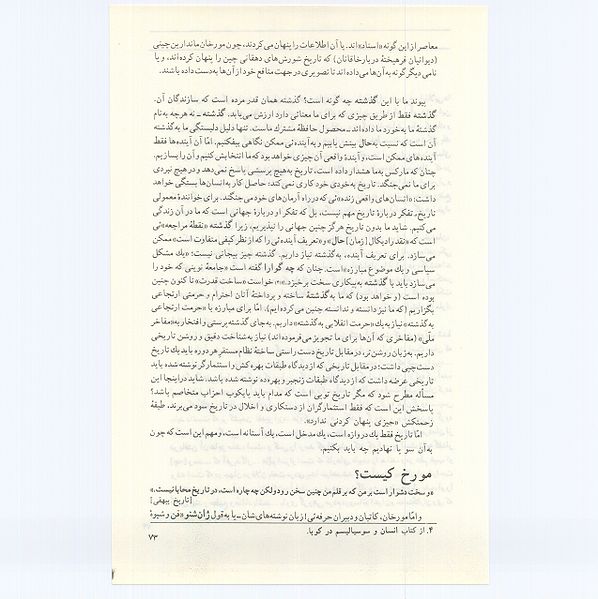 معاصر از این گونه «اسناد»اند. یا آن اطلاعات را پنهان می‌کردند، چون مورخان ماندارین چینی
(دیوانیان فرهیختهٔ دربار خاقانان) که تاریخ شورش‌های دهقانی چین را پنهان کرده‌اند، و یا
نامی دیگرگونه به آن‌ها می‌داده‌اند تا تصویری در جهت منافع خود از آن‌ها به‌دست داده باشند.
پیوند ما با این گذشته چه گونه است؟ گذشته همان قدر مرده است که سازندگان آن.
گذشته فقط از طریق چیزی که برای ما معنائی دارد ارزش می‌یابد. گذشته ـ نه هرچه به نام
گذشتهٔ ما به‌خورد ما داده‌اند ـ محصول حافظهٔ مشترك ماست. تنها دلیل دلبستگی ما به‌گذشته
آن است که نسبت به‌حال بینش یابیم و به‌آینده‌ئی ممکن نگاهی بیفکنیم. امّا آن آینده‌ها فقط
آینده‌های ممکن است، و آیندهٔ واقعی آن چیزی خواهد بود که ما انتخابش کنیم و آن را بسازیم.
چنان که مارکس به‌ما هشدار داده است، تاریخ به‌هیچ پرسشی پاسخ نمی‌دهد و در هیچ نبردی
برای ما نمی‌جنگد. تاریخ به‌خودی خود کاری نمی‌کند؛ حاصل کار به‌انسان‌ها بستگی خواهد
داشت: «انسان‌های واقعی زنده»ئی که در راه آرمان‌های خود می‌جنگند. برای خوانندهٔ معمولی
تاریخ، تفکر دربارهٔ تاریخ مهم نیست، بل که تفکر او دربارهٔ جهانی است که ما در آن زندگی
می‌کنیم. شاید ما بدون تاریخ هرگز چنین جهانی را نپذیریم، زیرا گذشته «نقطهٔ مراجعه»ئی
است که «نقد رادیکال [زمان] حال» و «تعریف آینده‌ئی را که از نظر کیفی متفاوت است» ممکن
می‌سازد. برای تعریف آینده، به‌گذشته نیاز داریم. گذشته چیز بیجانی نیست؛ «یك مشکل
سیاسی و یك موضوع مبارزه» است. چنان که چه گوارا گفته است «جامعهٔ نوینی که خود را
می‌سازد باید با گذشته به‌پیکاری سخت برخیزد.»(۴) خواست «ساخت قدرت» تا کنون چنین
بوده است (و خواهد بود) که ما به‌گذشتهٔ ساخته و پرداختهٔ آنان احترام و حرمتی ارتجاعی
بگزاریم (که ما نیز دانسته و ندانسته چنین می‌کرده‌ایم). امّا برای مبارزه با «حرمت ارتجاعی
به‌گذشته» نیاز به‌یك «حرمت انقلابی به‌گذشته» داریم. به‌جای گذشته پرستی و افتخار به«مفاخر
ملّی» (مفاخری که آن‌ها برای ما تجویز می‌فرموده‌اند) نیاز به‌شناخت دقیق و روشن تاریخی
داریم. به‌زبان روشن‌تر، در مقابل تاریخ دست راستی ساختهٔ نظام مستقر هر دوره باید یك تاریخ
دست‌چپی داشت: در مقابل تاریخی که از دیدگاه طبقات بهره‌کش و استثمارگر نوشته شده باید
تاریخی عرضه داشت که از دیدگاه طبقات زنجبر و بهره‌ده نوشته شده باشد. شاید در اینجا این
مسأله مطرح شود که مگر تاریخ توپی است که مدام باید پایکوب احزاب متخاصم باشد؟
پاسخش این است که فقط استثمارگران از دستکاری و اخلال در تاریخ سود می‌برند. طبقهٔ
زحمتکش «چیزی پنهان کردنی ندارد».
امّا تاریخ فقط یك دروازه است، یك مدخل است، یك آستانه است، و مهم این است که چون
به‌آن سو پا نهادیم چه باید بکنیم.
مورخ کیست؟
«و سخت دشوار است بر من که بر قلم من چنین سخن رود ولکن چه چاره است، در تاریخ محابا نیست.»
[تاریخ بیهقی]
و امّا مورخان، کاتبان و دبیران حرفه‌ئی! از بان نوشته‌های‌شان ـ یا به‌قول ژان‌شنو «فن و شیوهٔ
۴. از کتاب انسان و سوسیالیسم در کوبا.
۷۳